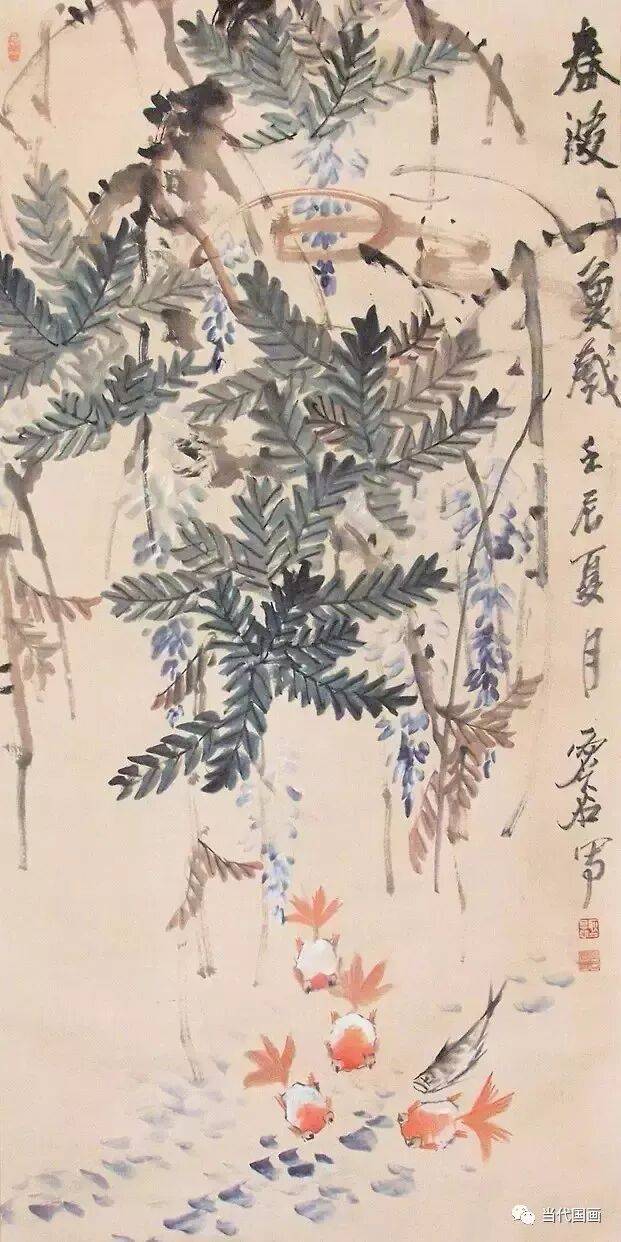 春波魚戲 壬辰夏月 石写
当代国画